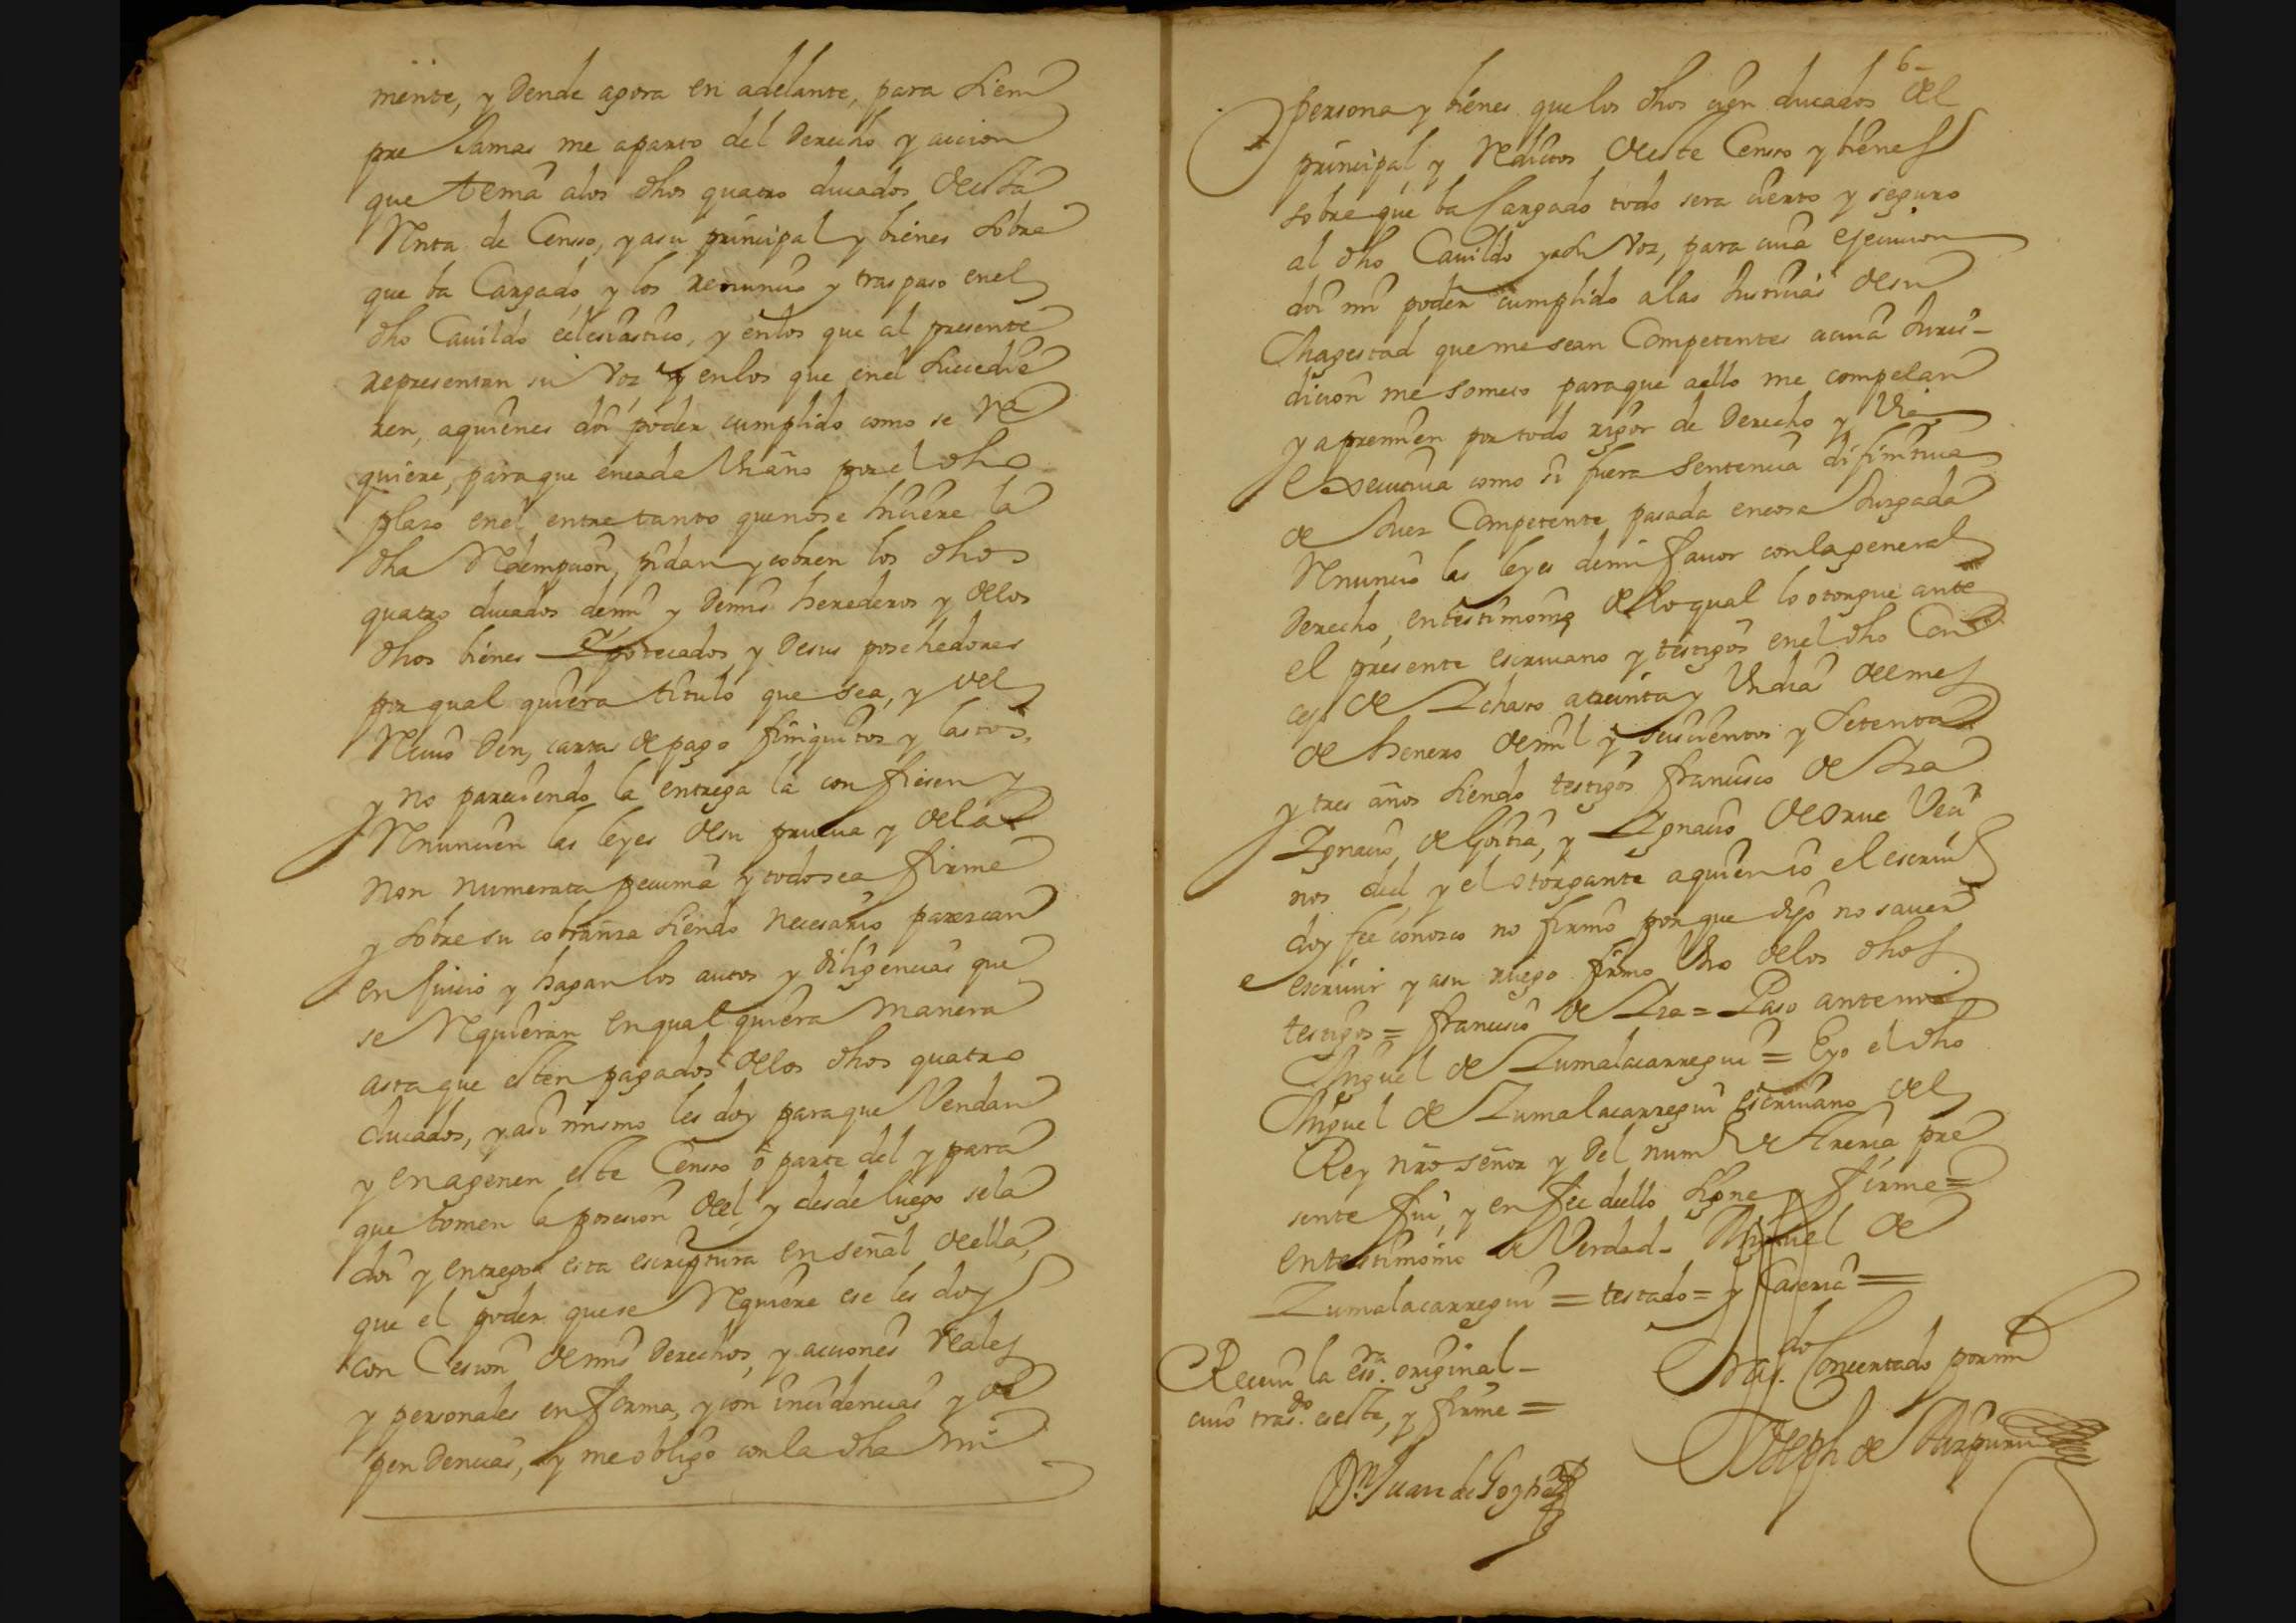 mente, y Dende agora en adelante, para siem
pre Jamas me aparto del Derecho y accion
que tenia a los dhos quatro ducados desta
Renta de Censso, y a su principal y bienes sobre
que ba Cargado, y los renuncio y traspaso en el
dho Cauildo eclesiastico, y en los que al presente
representan su voz y en los que en el sucedie
ren, aquienes doi poder cumplido como se re
quiere, para que en cada Un año por el dho
plazo en el entretanto que no se hiciere la
dha Redempcion, pidan y cobren los dhos
quatro ducados de mi y Demis herederos y de los
dhos bienes Ypotecados, y Desus posehedores
por qual quiera titulo que sea, y del
Reciuo Den, cartas de pago finiquitos y lastos,
y no pareciendo la entrega la confiesen y
Renuncien las leyes de su prueua y de la
non numerata pecunia y todo sea firme
y sobre su cobranza siendo necesario parezcan
en Juicio y hagan los autos y diligencias que
se Requieran en qual quiera manera
asta que esten pagados de los dhos quatro
ducados, y asi mismo les doy para que Vendan
y enagenen este Censso o parte del y para
que tomen la posesion del, y desde luego se la
doi y entrego esta escriptura en señal della,
que el poder que se Requiere ese les doy
con Cesion de mis Derechos, y acciones reales
y personales en forma, y con incidencias y de
pendencias, y me obligo con la dha mi
6-
persona y bienes que los dhos cien ducados del
principal y Reditos deste Censso y bienes
sobre que ba Cargado todo sera cierto y seguro
al dho Cauildo y a su Voz, para cuia ejecucion
doi mi poder cumplido a las Justicias de su
Magestad que me sean Competentes acuia Juris-
dicion me someto para que aello me compelan
y apremien por todo rigor de Derecho y Via
executiua como si fuera Sentencia difinitiua
de Juez Competente pasada en cosa Juzgada
Renuncio las leyes de mi fauor con la general
Derecho, en testimonio de lo qual lo otorgue ante
el presente escriuano y testigos en el dho Con
cejo de Ichaso a treinta y Un dias del mes
de henero de mil y seiscientos y setenta
y tres años siendo testigos francisco de Iza
Ignacio de Goitia, y Ignacio de Orue Veci
nos del, y el otorgante aquien io el escriuº
doy fee conozco no firmo por que dijo no sauer
escriuir y a su ruego firmo Uno de los dhos
testigos = francisco de Iza = Paso ante mi
Miguel de Zumalacarregui = E yo el dho
Miguel de Zumalacarregui escriuano del
Rey nro señor y Del numº de Areria pre
sente fui, y en fee dello signe y firme =
en testimonio de Verdad - Miguel de
Zumalacarregui = testado = y Caseria =
Reciui la essra. original -
cuio trasdo. es este, y firme =
Dn Juan de Goytia
Trasdo. Concertado por mi
Joseph de Aizpuru